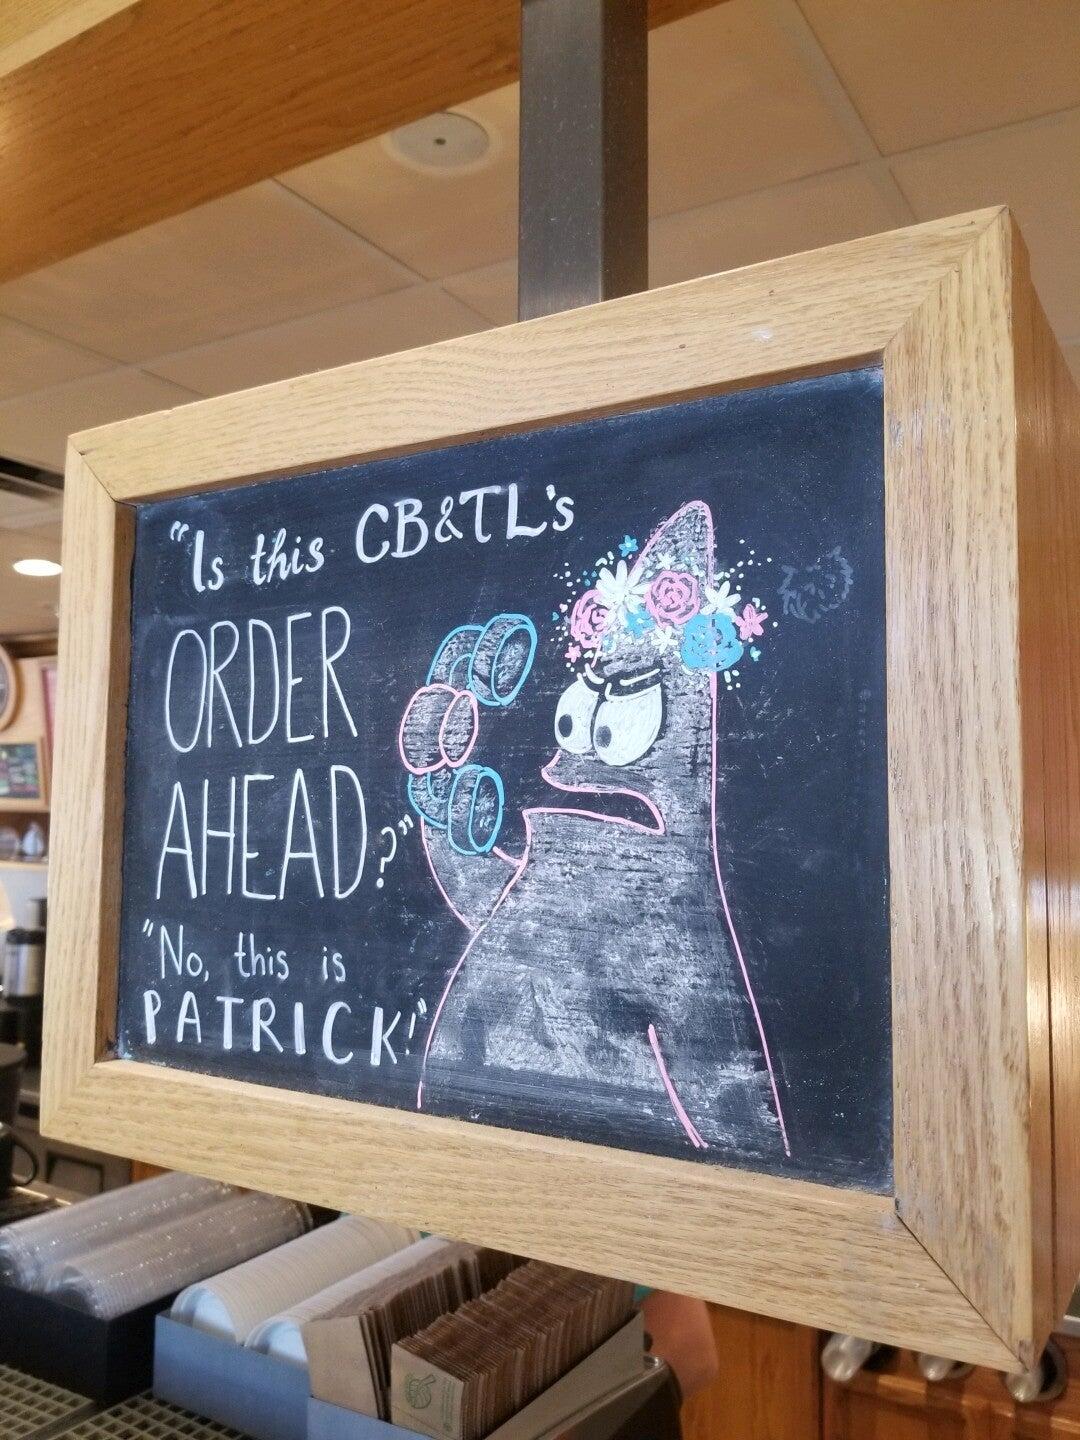 "Is this CB&TL's
ORDER
AHEAD?"
"No, this is
PATRICK!"